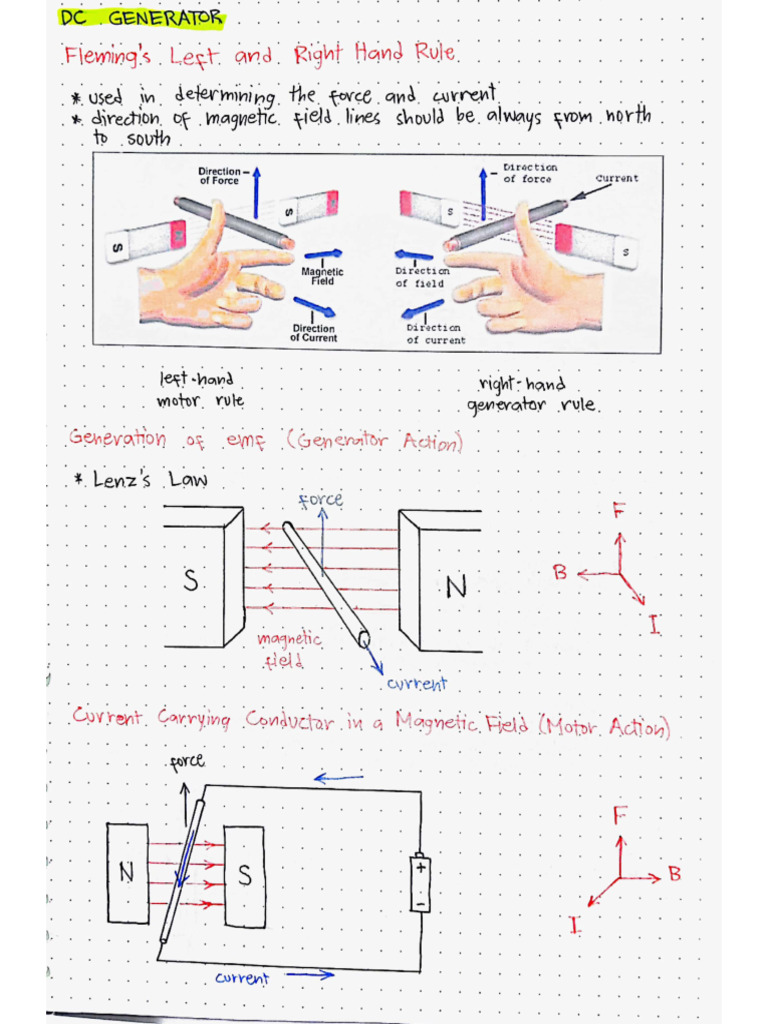 DC GENERATOR
Fleming's Left and Right Hand Rule
* used in determining the force and current
* direction of magnetic field lines should be always from north
to south
Direction
of Force
S
S
Magnetic
Field
Direction
of Current
Direction
of force
Current
S
S
Direction
of field
Direction
of current
left-hand
motor rule
right-hand
generator rule
Generation of emf (Generator Action)
* Lenz's Law
force
S
N
magnetic
field
current
F
B
I
Current Carrying Conductor in a Magnetic Field (Motor Action)
force
N
S
+
-
current
F
B
I